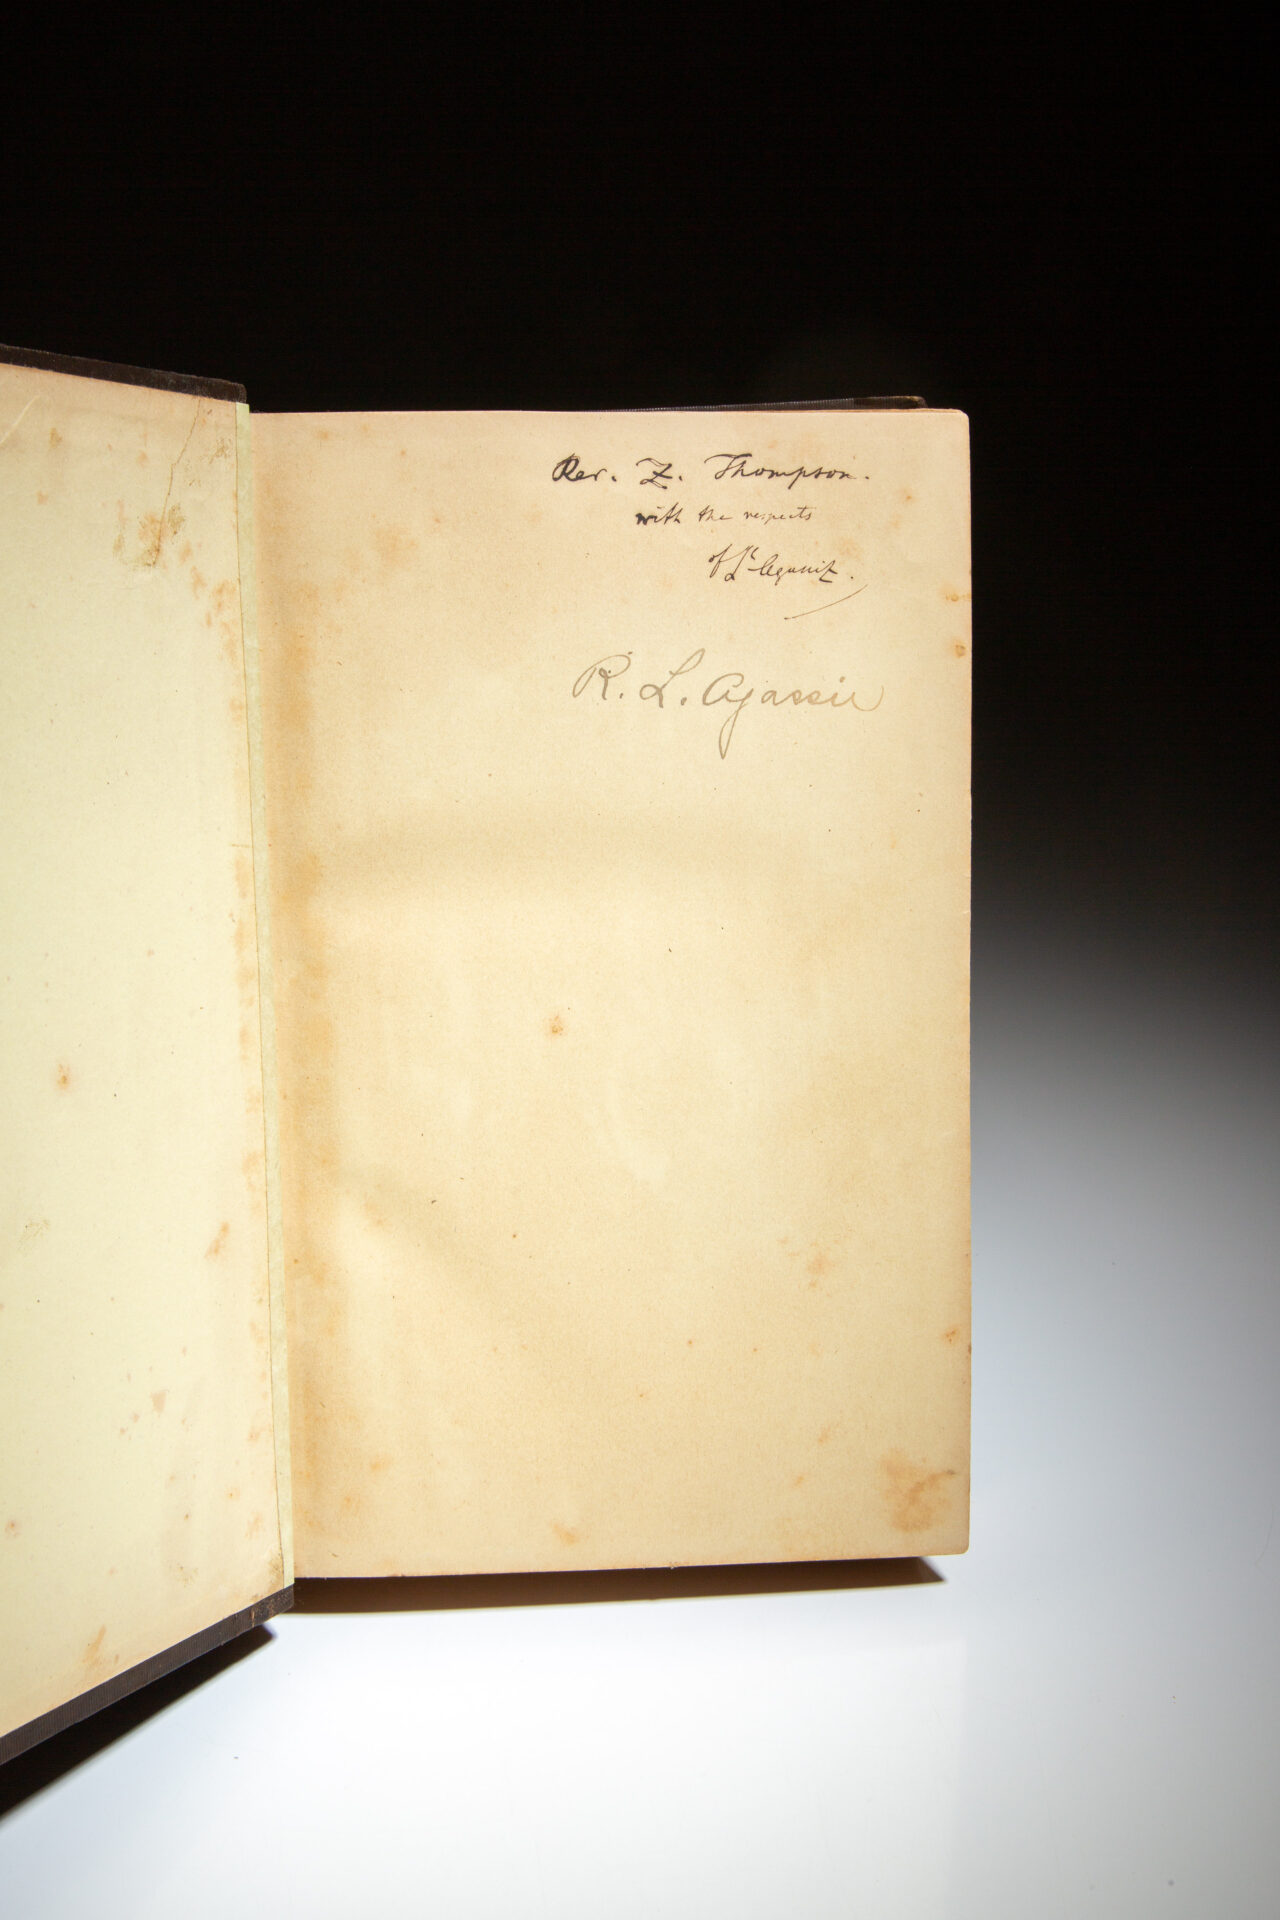 Rev. Z. Thompson.
with the respects
of Ls Agassiz.
R. L. Agassiz